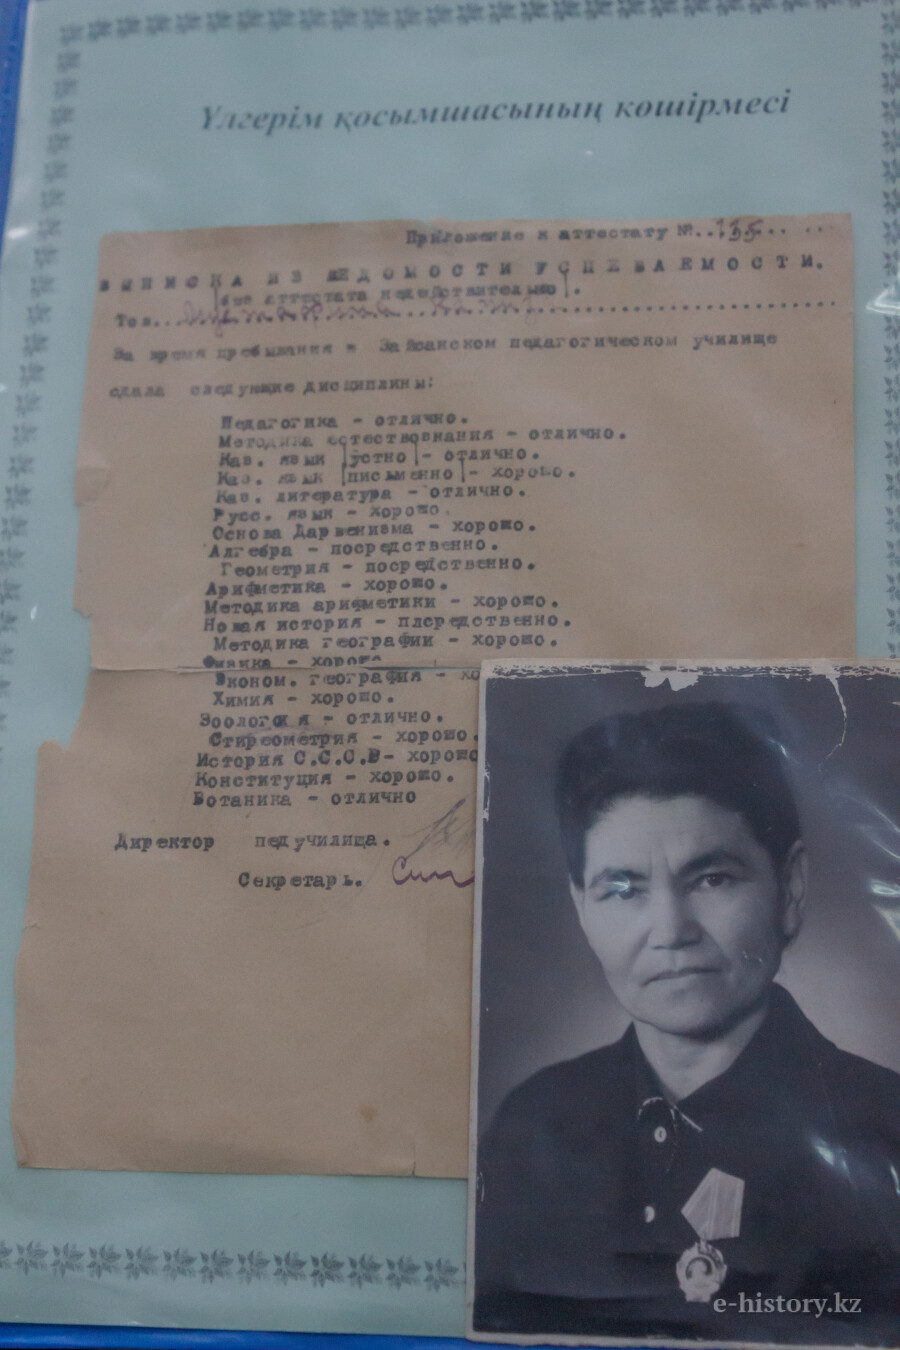 Үлгерім қосымшасының көшірмесі
Приложение к аттестату №..155.. ..
ВЫПИСКА ИЗ ВЕДОМОСТИ УСПЕВАЕМОСТИ.
|без аттестата недействительно|.
Тов...
За время пребывания в Зайсанском педагогическом училище
сдала следующие дисциплины:
Педагогика - отлично.
Методика естествознания - отлично.
Каз. язык |устно|- отлично.
Каз. язык |письменно|- хорошо.
Каз. литература - отлично.
Русс. язык - хорошо.
Основа Дарвенизма - хорошо.
Алгебра - посредственно.
Геометрия - посредственно.
Арифметика - хорошо.
Методика арифметики - хорошо.
Новая история - плсредственно.
Методика географии - хорошо.
Физика - хорошо
Эконом. география - хо
Химия - хорошо.
Зоология - отлично.
Стиреометрия - хорошо.
История С.С.С.Р- хорошо
Конституция - хорошо.
Ботаника - отлично
Директор педучилища.
Секретарь.
e-history.kz